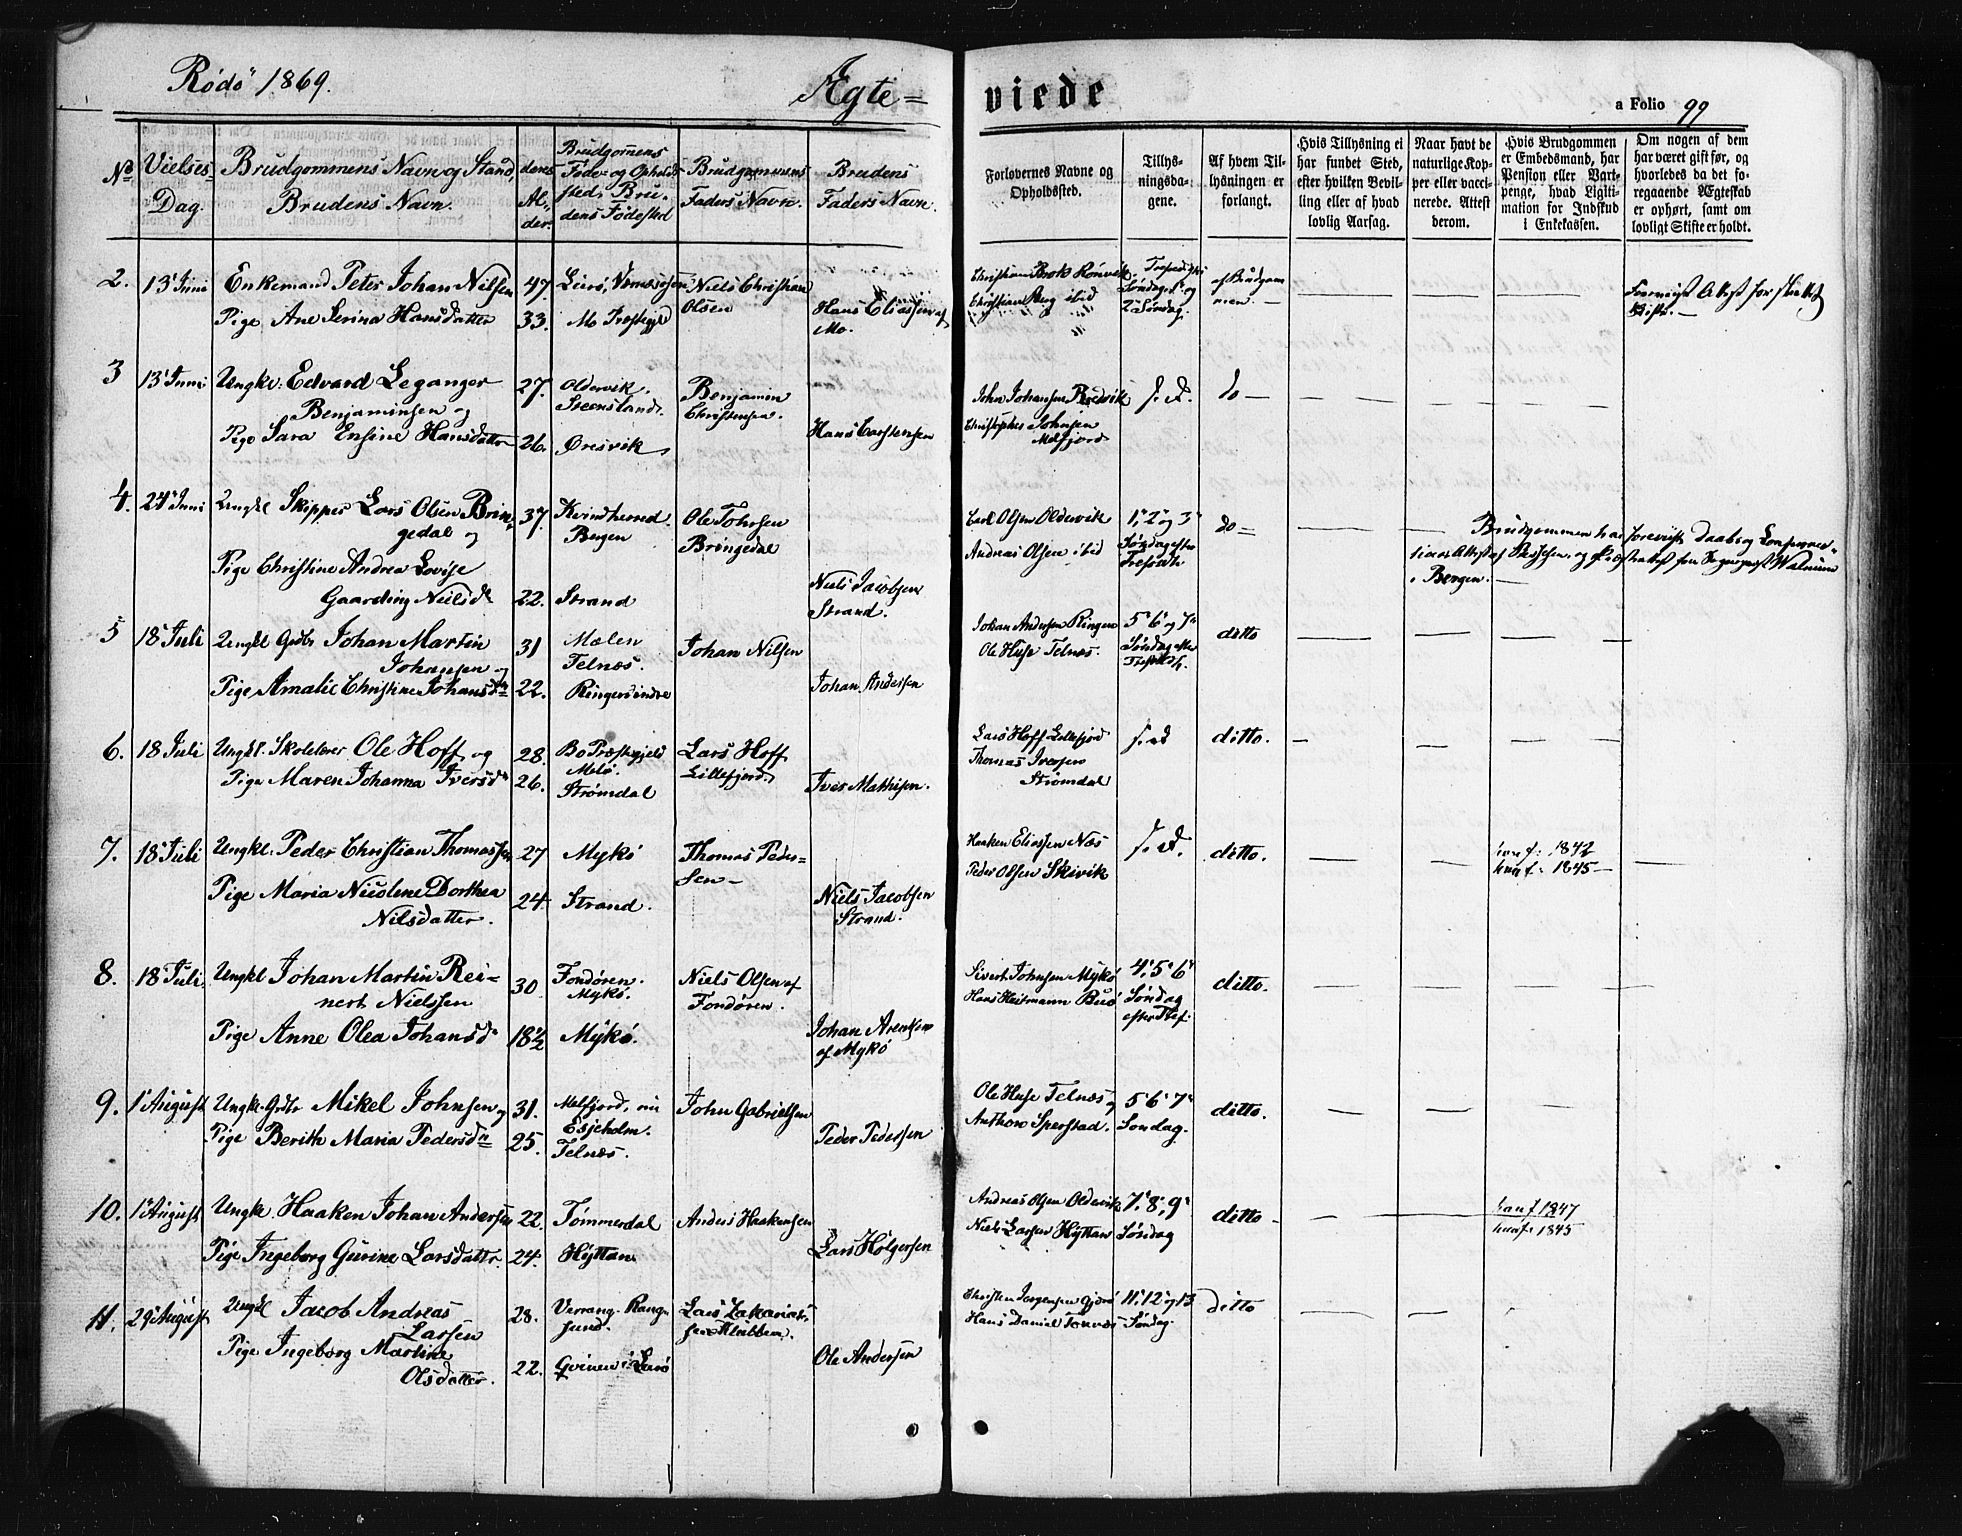 Rödö 1869.
Ægte=
viede
a Folio 99
No
Vielses-
Dag.
Brudgommens Navn og Stand,
Brudens Navn.
deres
Al-
der.
Brudgomens
Føde- og Opholds
sted. Bru-
dens Fødested
Brudgommens
Faders Navn.
Brudens
Faders Navn.
Forlovernes Navne og
Opholdssted.
Tillys-
ningsda-
gene.
Af hvem Til-
lysningen er
forlangt.
Hvis Tillysning ei
har fundet Sted,
efter hvilken Bevil-
ling eller af hvad
lovlig Aarsag.
Naar havt de
naturlige Kop-
per eller vacci-
nerede. Attest
derom.
Hvis Brudgommen
er Embedsmand, har
Pension eller Vart-
penge, hvad Ligiti-
mation for Indskud
i Enkekassen.
Om nogen af dem
har været gift før, og
hvorledes da det fo-
regaaende Ægteskab
er ophørt, samt om
lovligt Skifte er holdt.
2. 13 Juni Enkemand Peter Johan Nilsen 47. Niels Christian
Olsen
Christian Berg ibid
Søndag og
2 Søndag.
af Brudgom
men. —
Pige Ane Serina Hansdatter 33. Mo Præstegjd Hans Eliassen af
Mo.
3 13 Juni Ungkl: Edvard Leganger
Benjaminsen og
27. Oldervik
Benjamin
Christensen.
John Johansen
s. d. do —
Pige Sara Ensine Hansdatter 26. Øresvik Hans Carstensen
Christopher Johnsen
Melfjord
4. 24 Juni Ungkl Skipper Lars Olsen Brin-
gedal og
37. Kvindherred
Bergen
Ole
Bringedal
Carl Olsen Oldervik
Andreas Olsen ibid
1, 2 og 3
Søndag efter
do —
Brudgommen har forevist Daabs og
Bergen. —
Pige Christine Andrea Lovise
Gaarding Nielsd 22. Strand
Niels Jacobsen
Strand.
5 18 Juli Ungkl Grdbr Johan Martin
Johansen og
31 Mælen
Telnæs.
Johan Nilsen
Johan Andersen Ringen
Ole Huse Telnæs.
5 6 og 7
Søndag efter
ditto
Pige Amalie Christine Johansd 22. Ringen indre Johan Andersen
6. 18 Juli Ungkl. Skolelærer Ole Hoff og 28. Bo Præstegjeld
Melø.
Lars Hoff
Lillefjord.
Lars Hoff Lillefjord
Thomas Iversen
Strömdal
s. d ditto.
Pige Maren Johanna Iversd 26. Strömdal Iver Mathisen.
7. 18 Juli Ungkl. Peder Christian Thomassen 27 Mykö Thomas Peder-
sen —
Haaken Eliassen Næs
Peder Olsen Skivik
s. d. ditto.
1842
1845 —
Pige Maria Nicoline Dorthea
Nilsdatter.
24. Strand. Niels Jacobsen
Strand.
8. 18 Juli Ungkl Johan Martin Rei-
nert Nielssen
30 Fondören.
Mykö.
Niels Olsen af
Fondören.
Sivert Johnsen Mykö
Hans Heitmann
4 5 6
Søndag
efter
ditto.
Pige Anne Olea Johansd 18½ Mykö. Johan
af Mykö
9. 1 August Ungkl. Grdbr Mikel Johnsen og 31. Melfjord, nu
Esjeholm.
John Gabrielsen
Ole Huse Telnæs og
Sperstad.
5 6 7
Søndag.
ditto.
Pige Berith Maria Pedersd 25. Telnæs. Peder Pedersen
10. 1 August Ungkl. Haaken Johan Andersen 22. Tömmerdal Anders Haakensen
Andreas Olsen Oldervik
Niels Larsen Hyttan
7, 8, 9
Søndag
ditto
1847
1845
Pige Ingeborg Gurine Larsdatter 24. Hyttan Lars Holgersen
11. 29 August Ungkl Jacob Andreas
Larsen
28. Verrang. Rang-
sund.
Lars Zakarias-
sen
Christen Jørgensen
Hans Daniel
11, 12 og 13
Søndag.
ditto
Pige Ingeborg Martine
Olsdatter.
22. Ole Andersen